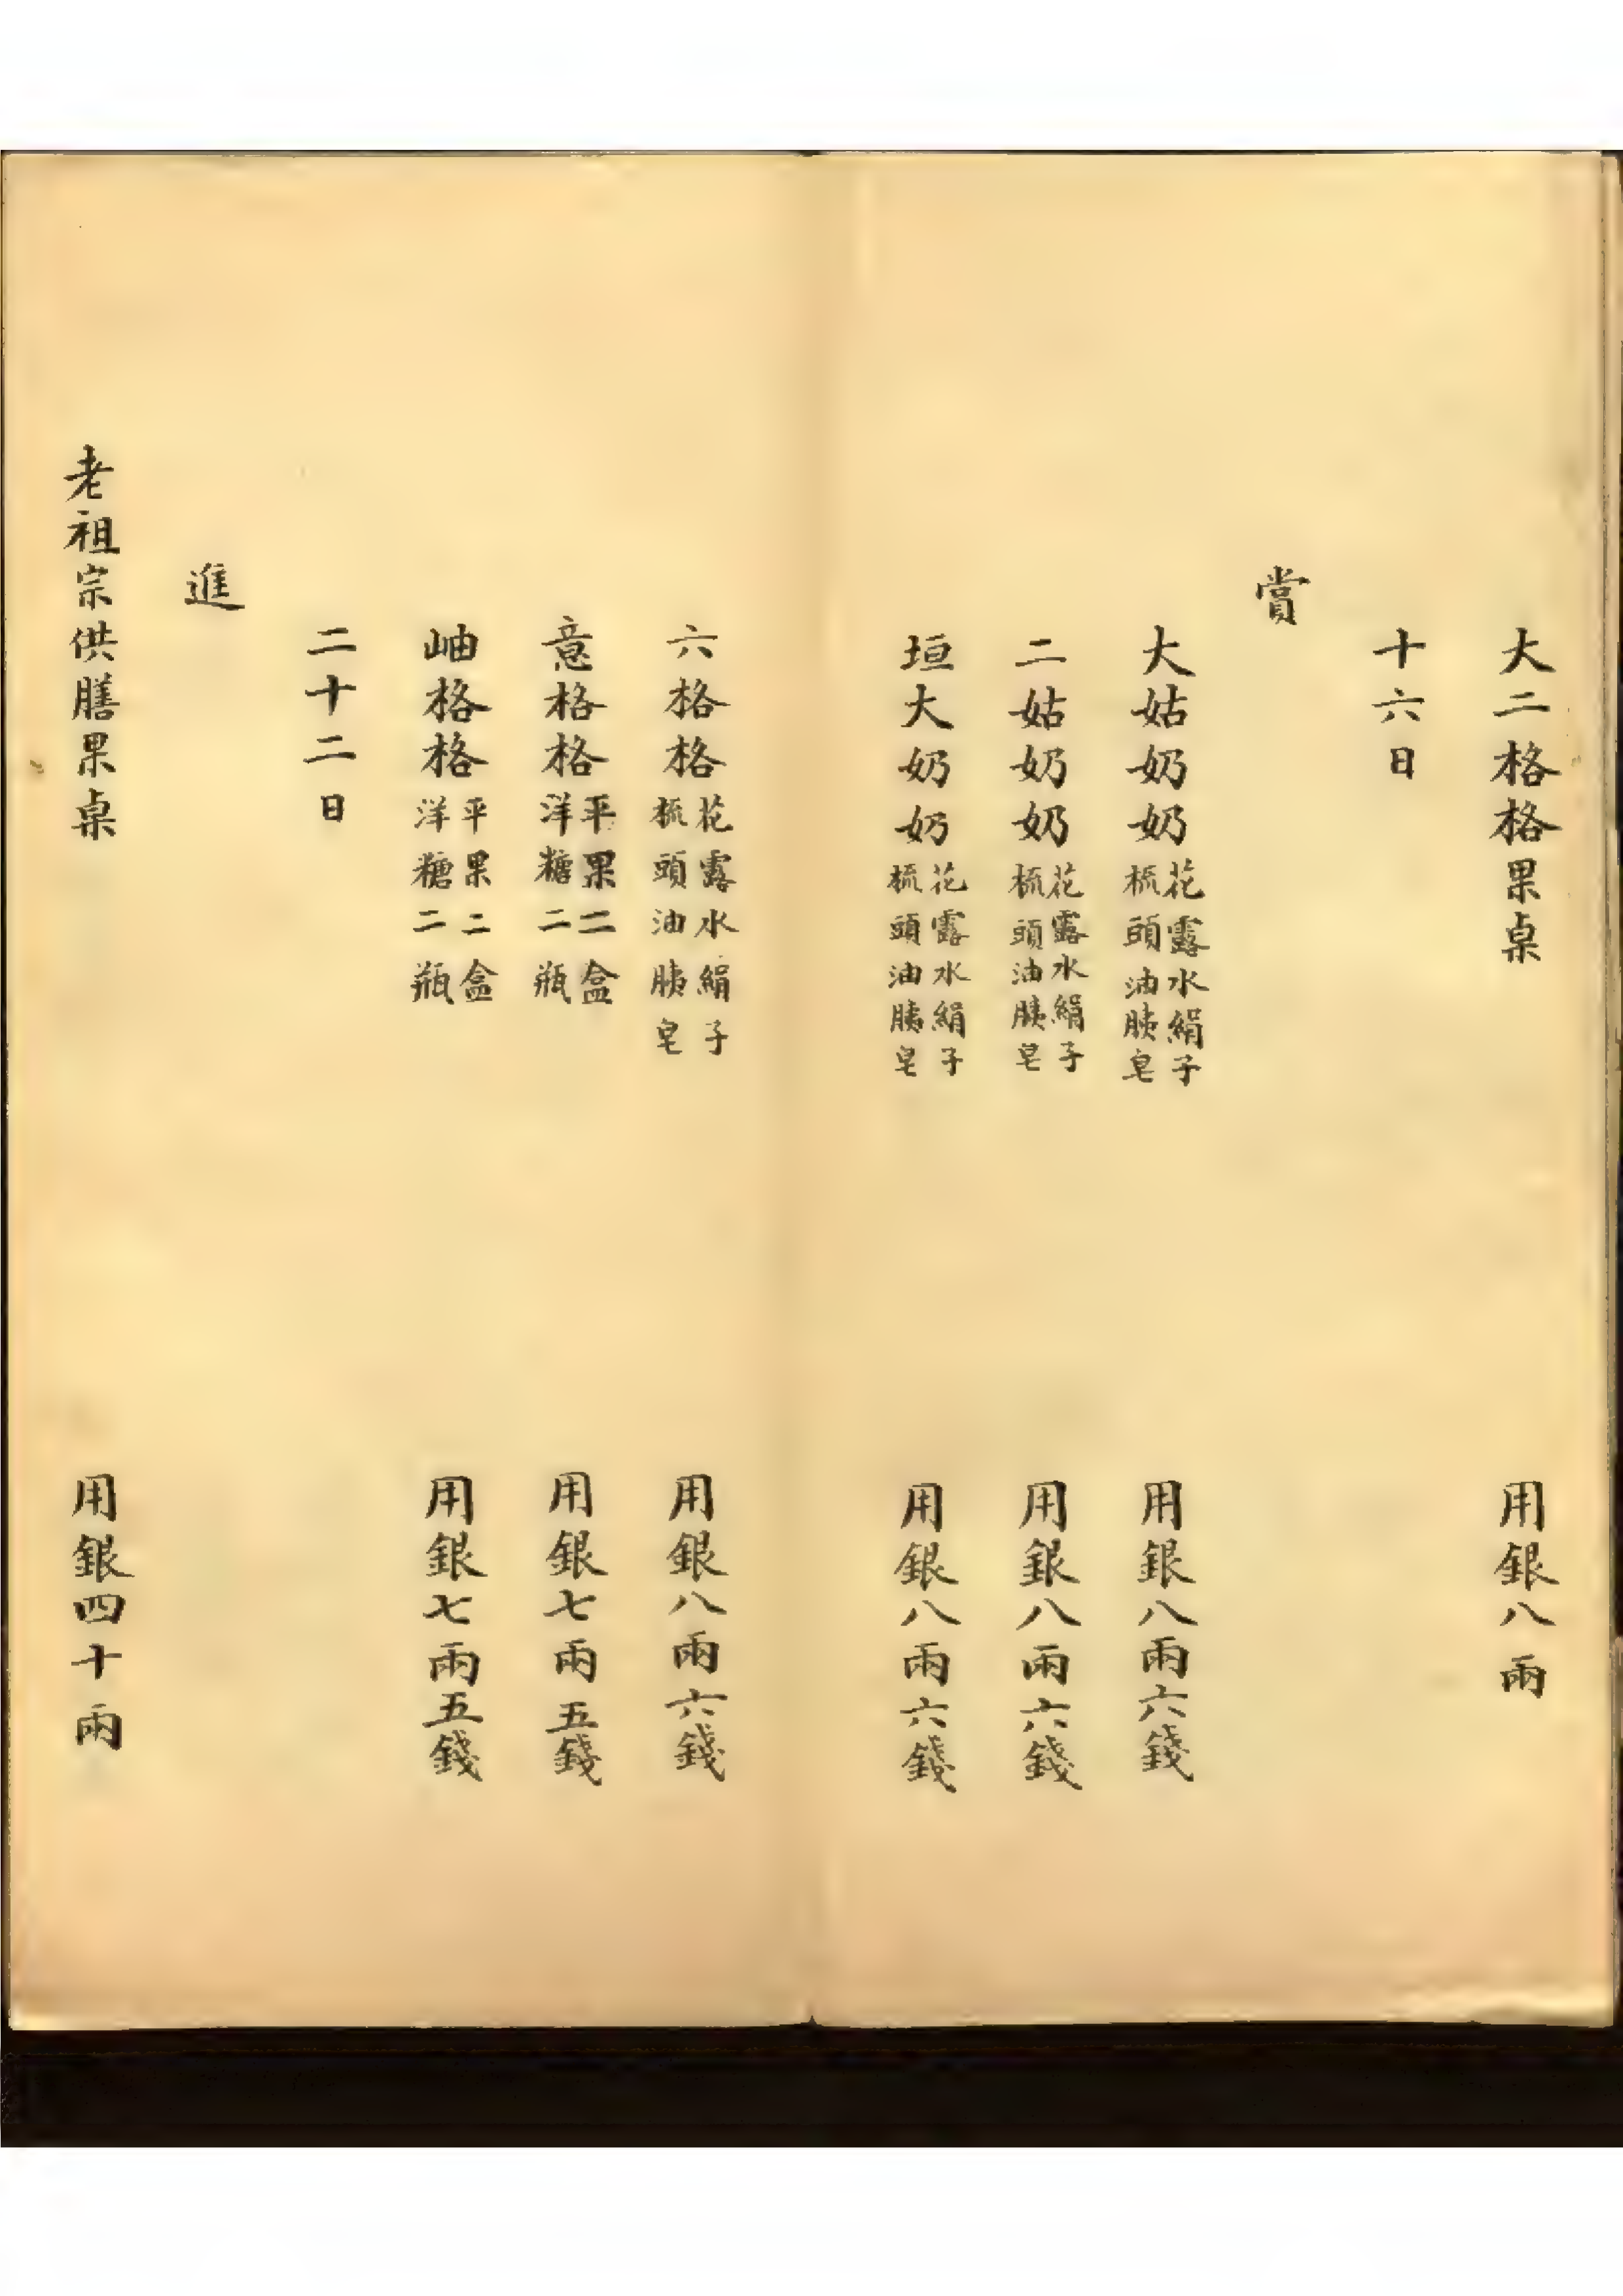 大二格格果桌 用銀八兩
十六日
賞
大姑奶奶 花露水絹子 梳頭油胰皂 用銀八兩六錢
二姑奶奶 花露水絹子 梳頭油胰皂 用銀八兩六錢
垣大奶奶 花露水絹子 梳頭油胰皂 用銀八兩六錢
六格格 花露水絹子 梳頭油胰皂 用銀八兩六錢
意格格 平果二盒 洋糖二瓶 用銀七兩五錢
岫格格 平果二盒 洋糖二瓶 用銀七兩五錢
二十二日
進
老祖宗供膳果桌 用銀四十兩